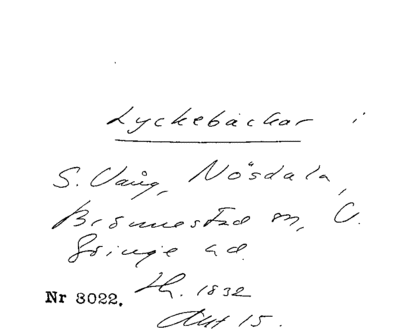 Lyckebäckar i
S. Vång, Nösdala,
Brönnestad sn, V.
Göinge hd.
Nr 3022. Lh. 1832
Akt 15.